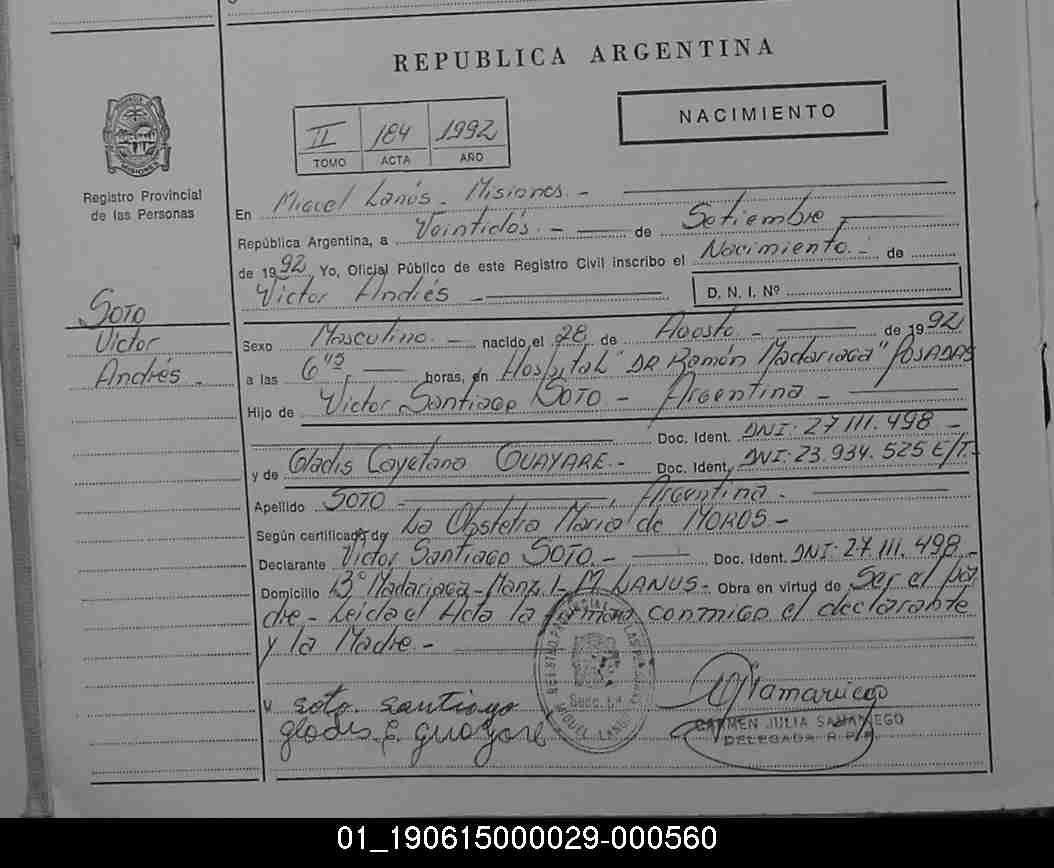 REPUBLICA ARGENTINA
NACIMIENTO
II 184 1992
TOMO ACTA AÑO
MISIONES
Registro Provincial
de las Personas
En Miguel Lanús - Misiones. -
República Argentina, a Veintidós. - de Setiembre
de 1992 Yo, Oficial Público de este Registro Civil inscribo el Nacimiento. - de
Victor Andrés - D. N. I. Nº
SOTO
Victor
Andrés. -
Sexo Masculino. - nacido el 28 de Agosto - de 1992
a las 6 15 horas, en Hospital "DR Ramón Madariaga" POSADAS
Hijo de Victor Santiago SOTO - Argentina -
Doc. Ident. DNI: 27 111. 498 -
y de Gladis Cayetana GUAYARE. - Doc. Ident. DNI: 23.934. 525 E/T. -
Apellido SOTO Argentina. -
Según certificado de La Obstetra María de MOROS -
Declarante Victor Santiago SOTO. - Doc. Ident. DNI: 27. 111. 498 -
Domicilio Bº Madariaga - Manz. 1 - M. LANUS - Obra en virtud de Ser el pa
dre. - Leida el Acta la firma conmigo el declarante
y la Madre. -
soto. santiago
glodis C guayare
REGISTRO PROVINCIAL DE LAS PERSONAS
MIGUEL LANUS
CARMEN JULIA SAMANIEGO
DELEGADA R.P.P.
01_190615000029-000560